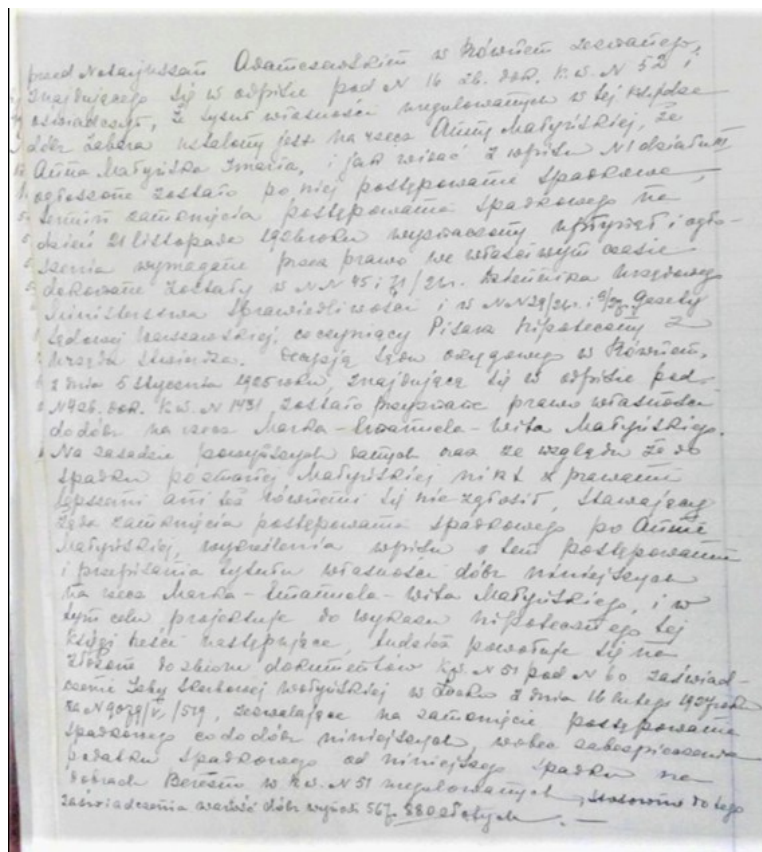 przed Notarjuszem Adamczewskim w Równem zeznanego,
znajdującego się w odpisie pod N 16 zb. dok. K.w. N 52 i
oświadczył, że tytuł własności uregulowanych w tej księdze
dóbr ustalony jest na rzecz Anny Małyńskiej, że
Anna Małyńska zmarła, i jak widać z wpisu N 1 działu
ogłoszone zostało po niej postępowanie spadkowe,
termin zamknięcia postępowania spadkowego na
dzień 21 listopada 1926 roku wyznaczony upłynął i ogło-
szenia wymagane przez prawo we właściwym czasie
dokonane zostały w N N 45 i 71/26r. Dziennika Urzędowego
Ministerstwa Sprawiedliwości i w N N 29/26r. i Gazety
Sądowej Warszawskiej, co czyniący Pisarz Hipoteczny z
urzędu stwierdza. Decyzją Sądu Okręgowego w Równem,
z dnia 5 stycznia 1925 roku, znajdującą się w odpisie pod
N 4 zb. dok. K.w. N 1431 zostało przyznane prawo własności
do dóbr na rzecz Marka-Emanuela-Wita Małyńskiego.
Na zasadzie powyższych danych oraz ze względu że do
spadku po zmarłej Małyńskiej nikt z prawami
lepszemi ani też równemi się nie zgłosił, stawający
żąda zamknięcia postępowania spadkowego po Annie
Małyńskiej, wykreślenia wpisu o tem postępowaniu
i przepisania tytułu własności dóbr niniejszych
na rzecz Marka-Emanuela-Wita Małyńskiego, i w
tym celu projektuje do wykazu hipotecznego tej
księgi treści następujące, tudzież powołuje się na
złożone do zbioru dokumentów K.w. N 51 pod N 60 zaświad-
czenie Izby Skarbowej Wołyńskiej w Łucku z dnia 16 lutego 1927 roku
za N 9079/V/519, zezwalające na zamknięcie postępowania
spadkowego co do dóbr niniejszych, wobec zabezpieczenia
podatku spadkowego od niniejszego spadku na
dobrach Berezno w K.w. N 51 uregulowanych, stosownie do tego
zaświadczenia wartość dóbr wynosi 880 złotych. —